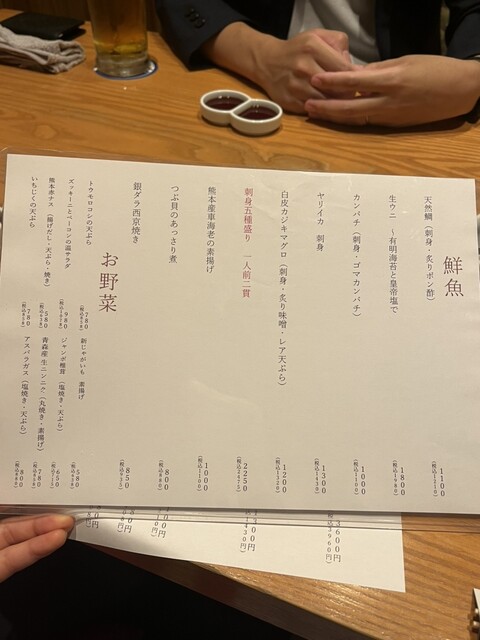 鮮魚
天然鯛（刺身・炙りポン酢）
1100
（税込1210）
生ウニ　〜有明海苔と皇帝塩で
1800
（税込1980）
カンパチ（刺身・ゴマカンパチ）
1000
（税込1100）
ヤリイカ　刺身
1300
（税込1430）
白皮カジキマグロ（刺身・炙り味噌・レア天ぷら）
1200
（税込1320）
刺身五種盛り　一人前二貫
2250
（税込2475）
熊本産車海老の素揚げ
1000
（税込1100）
つぶ貝のあっさり煮
800
（税込880）
銀ダラ西京焼き
850
（税込935）
お野菜
トウモロコシの天ぷら
780
（税込858）
ズッキーニとベーコンの温サラダ
980
（税込1078）
熊本赤ナス（揚げだし・天ぷら・焼き）
580
いちじくの天ぷら
780
（税込858）
新じゃがいも　素揚げ
580
（税込638）
ジャンボ椎茸　（塩焼き・天ぷら）
650
（税込715）
青森産 生ニンニク（丸焼き・素揚げ）
780
（税込858）
アスパラガス（塩焼き・天ぷら）
800
（税込880）
3600円
（税込3960円）